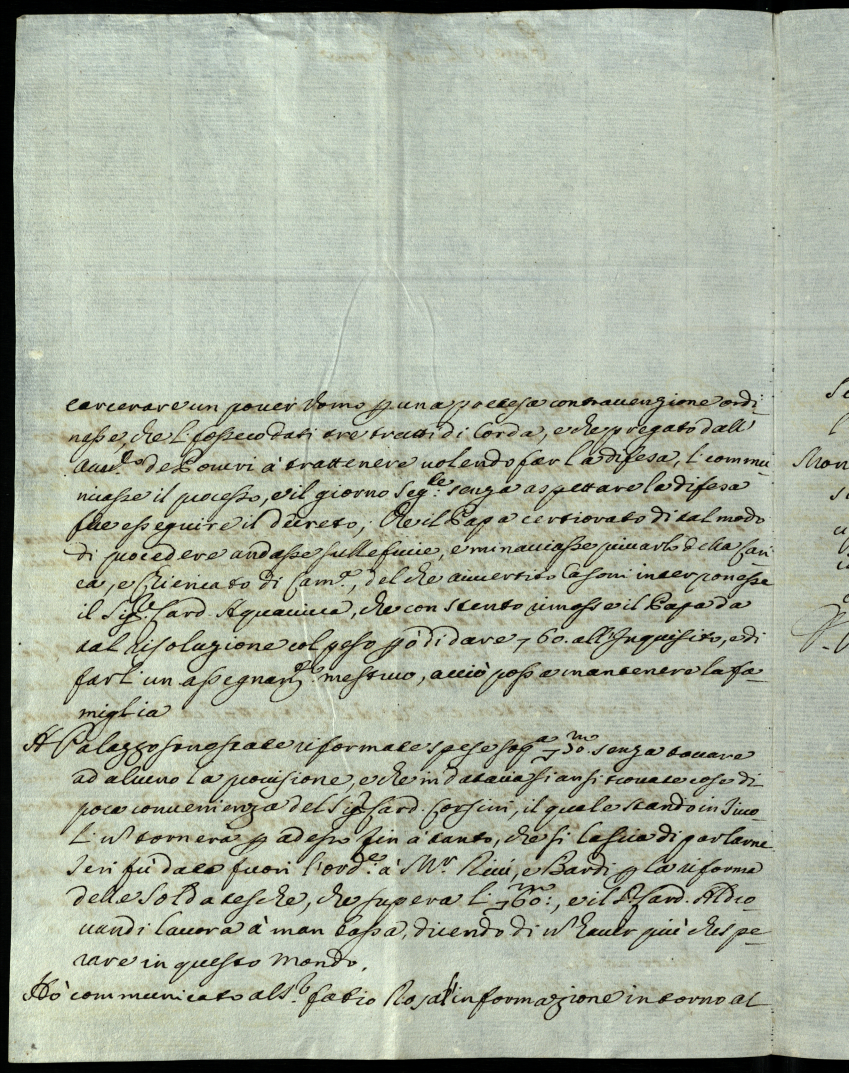 carcerare un pover Vomo p una pretesa contravenzione ordi
nasse, che l. fossero dati tre tratti di Corda, e che pregato dall'
Avv.to de Poveri à trattenere volendo far la difesa, l. commu
nicasse il processo, e il giorno seg.te senza aspettare la difesa
fece esseguire il decreto; Che il Papa certiorato di tal modo
di procedere andasse sulle furie, e minacciasse privarlo della Cari
ca, e Chiericato di Cam.a, del che avvertito Casoni interponesse
il Sig.r Card. Aquaviva, che con stento rimosse il Papa da
tal risoluzione col peso pò di dare 60. all'Inquisito, e di
farl. un assegnam.to mestruo, acciò possa mantenere la fa
miglia
A Palazzo sono state riformate spese sop.a 30.m senza toccare
ad alcuno la provisione, e che in dataria siansi trovate cose di
poca convenienza del Sig.r Card. Corsini, il quale stando in Tivo
l. n tornerà p adesso fin à tanto, che si lascia di parlarne
Ieri fù data fuori l'ord.e à M.r Ricci, e Bardi p la riforma
delle Soldatesche, che supera l. 60.m, e il S. Card. Aldro
vandi lavora à man bassa, dicendo di n haver più che spe
rare in questo Mondo.
Hò communicato al S.r fabio Rosa l'informazione intorno al